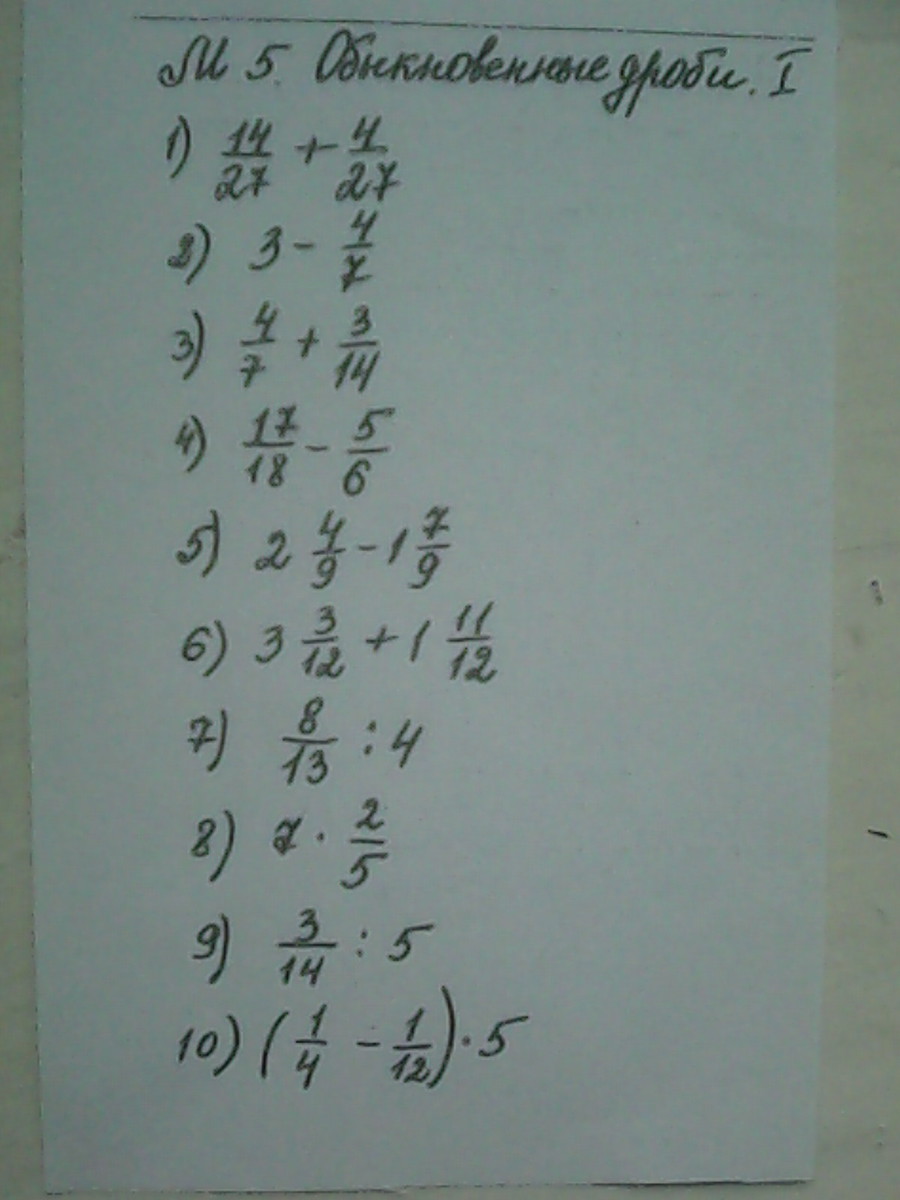 М 5. Обыкновенные дроби. I
1) 14/27 + 4/27
2) 3 - 4/7
3) 4/7 + 3/14
4) 17/18 - 5/6
5) 2 4/9 - 1 7/9
6) 3 3/12 + 1 11/12
7) 8/13 : 4
8) 7 · 2/5
9) 3/14 : 5
10) (1/4 - 1/12) · 5